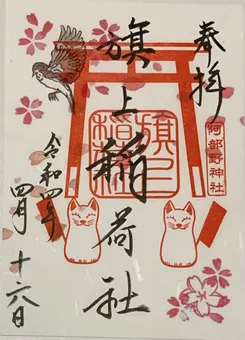 奉拝
阿部野神社
旗上稲荷社
旗上
稲荷
令和四年
四月
十六日